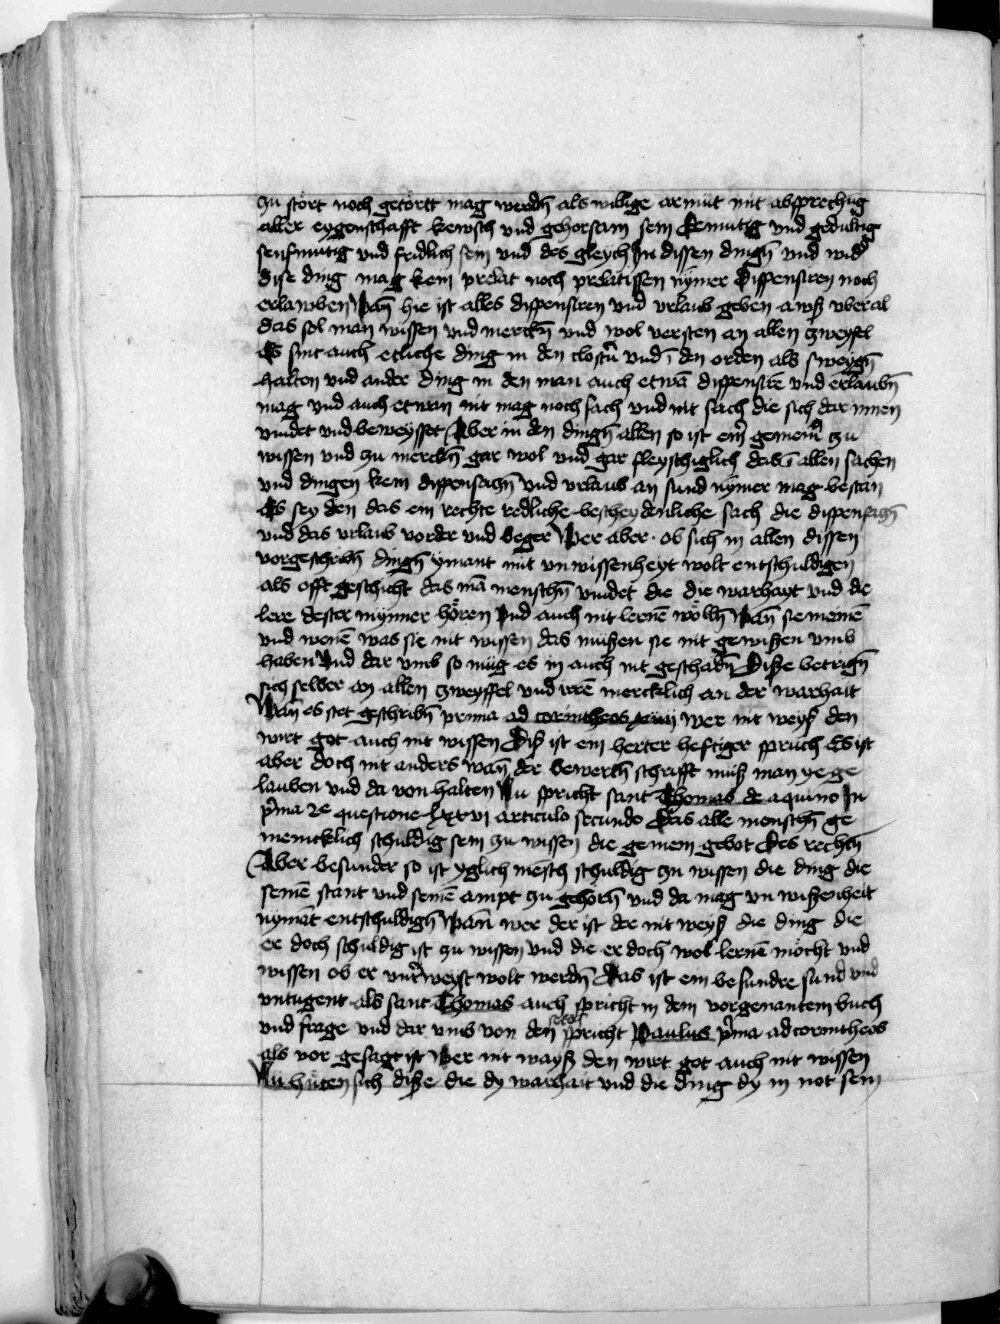 zu stört noch getörtt mag werdñ als willige armüt mit absprechũg
aller eygenschafft kewsch vnd gehorsam sein demutig vnd gedultig
senfmütig vnd fridlich sein vnd des gleych In dissen dingñ vnd wid'
dise ding mag kein prelat noch prelatissen nymer dispensiren noch
erlawben Wañ hie ist alles dispensiren vnd vrlaub geben awß vberal
das sol man wissen vnd merckñ vnd wol versten an allen zweyfel
Es sint auch etliche ding in den clostñ vnd ĩ den orden als sweygñ
halten vnd ander ding in den man auch etwã dispensirẽ vnd erlaubñ
mag vnd auch etwan nit mag noch sach vnd nit sach die sich dar innen
vindet vnd beweysset Aber in den dingñ allen so ist ein gemein' zu
wissen vnd zu merckñ gar wol vnd gar fleyschiglich das ĩ allen sachen
vnd dingen kein dispensacñ vnd vrlaub an sund nymer mag bestan
Es sey den das ein rechte redliche bescheydenliche sach die dispensacñ
vnd das vrlaub vorder vnd beger Wer aber ob sich in allen dissen
vorgeschribñ dingñ ymant mit vnwissenheyt wolt entschuldigen
als offt geschicht das mã menschñ vindet die die warhayt vnd die
lere dester mynner hören vnd auch nit lernẽ wöllñ Wañ sie meinẽ
vnd wenẽ was sie nit wissen das müßen sie nit gewißen vmb
haben Vnd dar vmb so müg es in auch nit geschadñ Diße betrigñ
sich selber an allen zweyffel vnd irrẽ mercklich an der warhait
Wañ es stet geschribñ prima ad corintheos xiiij wer nit weyß den
wirt got auch nit wissen Diß ist ein herter heftiger spruch Es ist
aber doch nit anders wañ der bewertñ schrifft müß man ye ge
lauben vnd da von halten Nu spricht sant Thomas de aquino In
p̃ma 2e questione lxxvi articulo secundo Das alle menschñ ge
meincklich schuldig sein zu wissen die gemein gebot des rechtñ
Aber besunder so ist yglich mẽsch schuldig zu wissen die ding die
seinẽ stant vnd seinẽ ampt zu gehorñ vnd da mag vn wißenheit
nymãt entschuldigñ Wañ wer der ist der nit weyß die ding die
er doch schuldig ist zu wissen vnd die er doch wol lernẽ möcht vnd
wissen ob er vnt'weyst wolt werdñ Das ist ein besundre sund vnd
vntugent als sant Thomas auch spricht in dem vorgenantem buch
vnd frage vnd dar vmb von den spricht Paulus p̃ma ad corintheos
als vor gesagt ist Wer nit wayß den wirt got auch nit wissen
Nu hüten sich diße die dy warhait vnd die ding dy in not sein